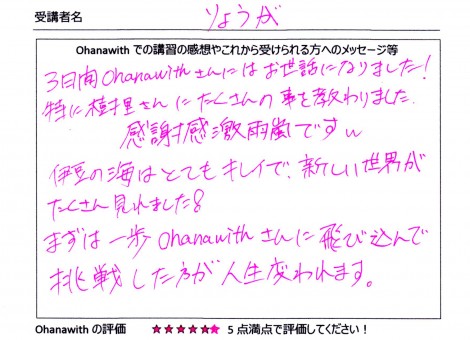 受講者名 りょうが
Ohanawith での講習の感想やこれから受けられる方へのメッセージ等
3日間Ohanawithさんにはお世話になりました!
特に樹里さんにたくさんの事を教わりました
感謝感激雨嵐ですw
伊豆の海はとてもキレイで、新しい世界が
たくさん見れました。
まずは一歩Ohanawithさんに飛び込んで
挑戦した方が人生変われます。
Ohanawith の評価 ★★★★★★ 5 点満点で評価してください!